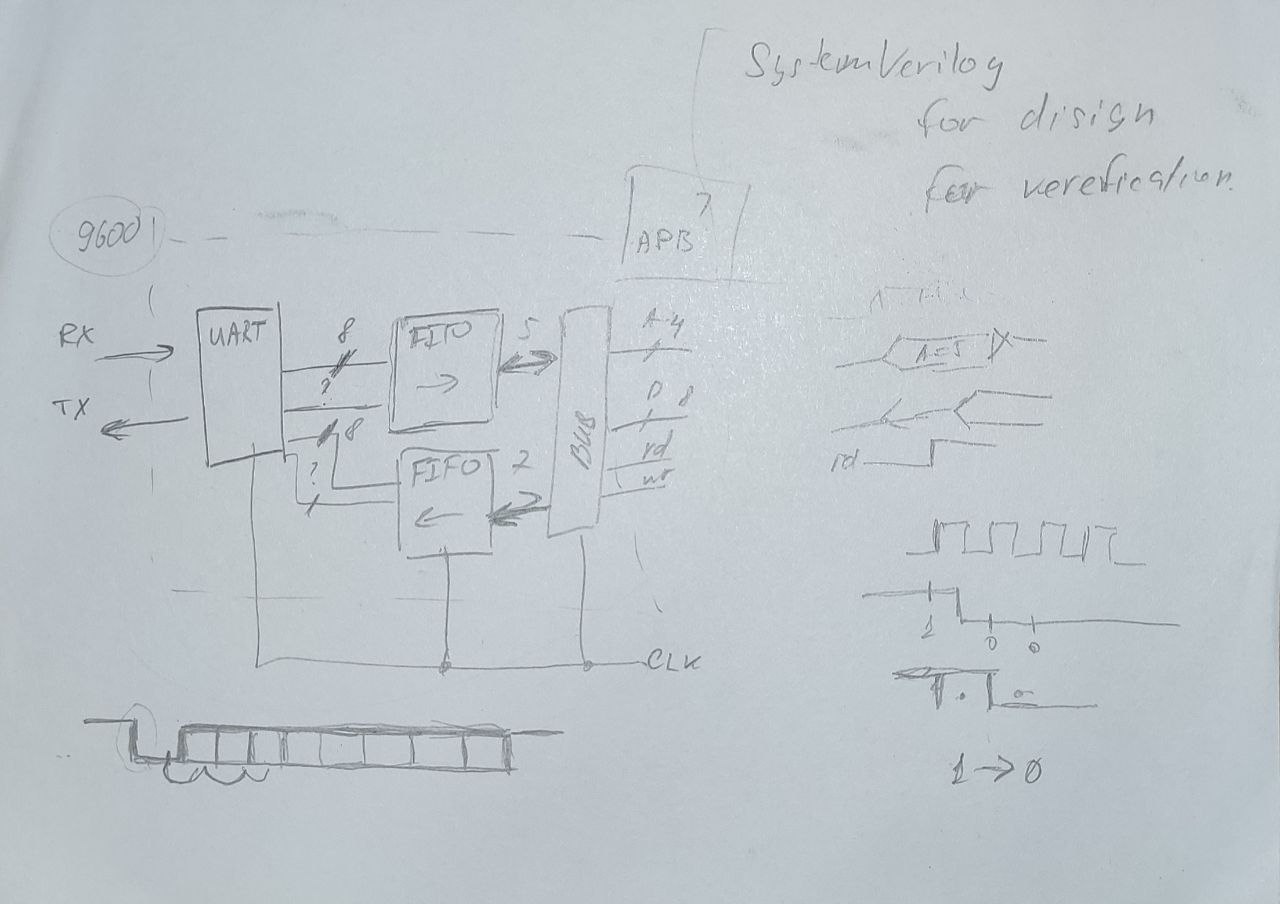 SystemVerilog
for disign
for verefication
9600
?
APB
RX
TX
UART
8
?
8
?
FIFO
5
FIFO
7
BUS
A-4
D 8
rd
wr
CLK
A=5
rd
1
0
0
1→0